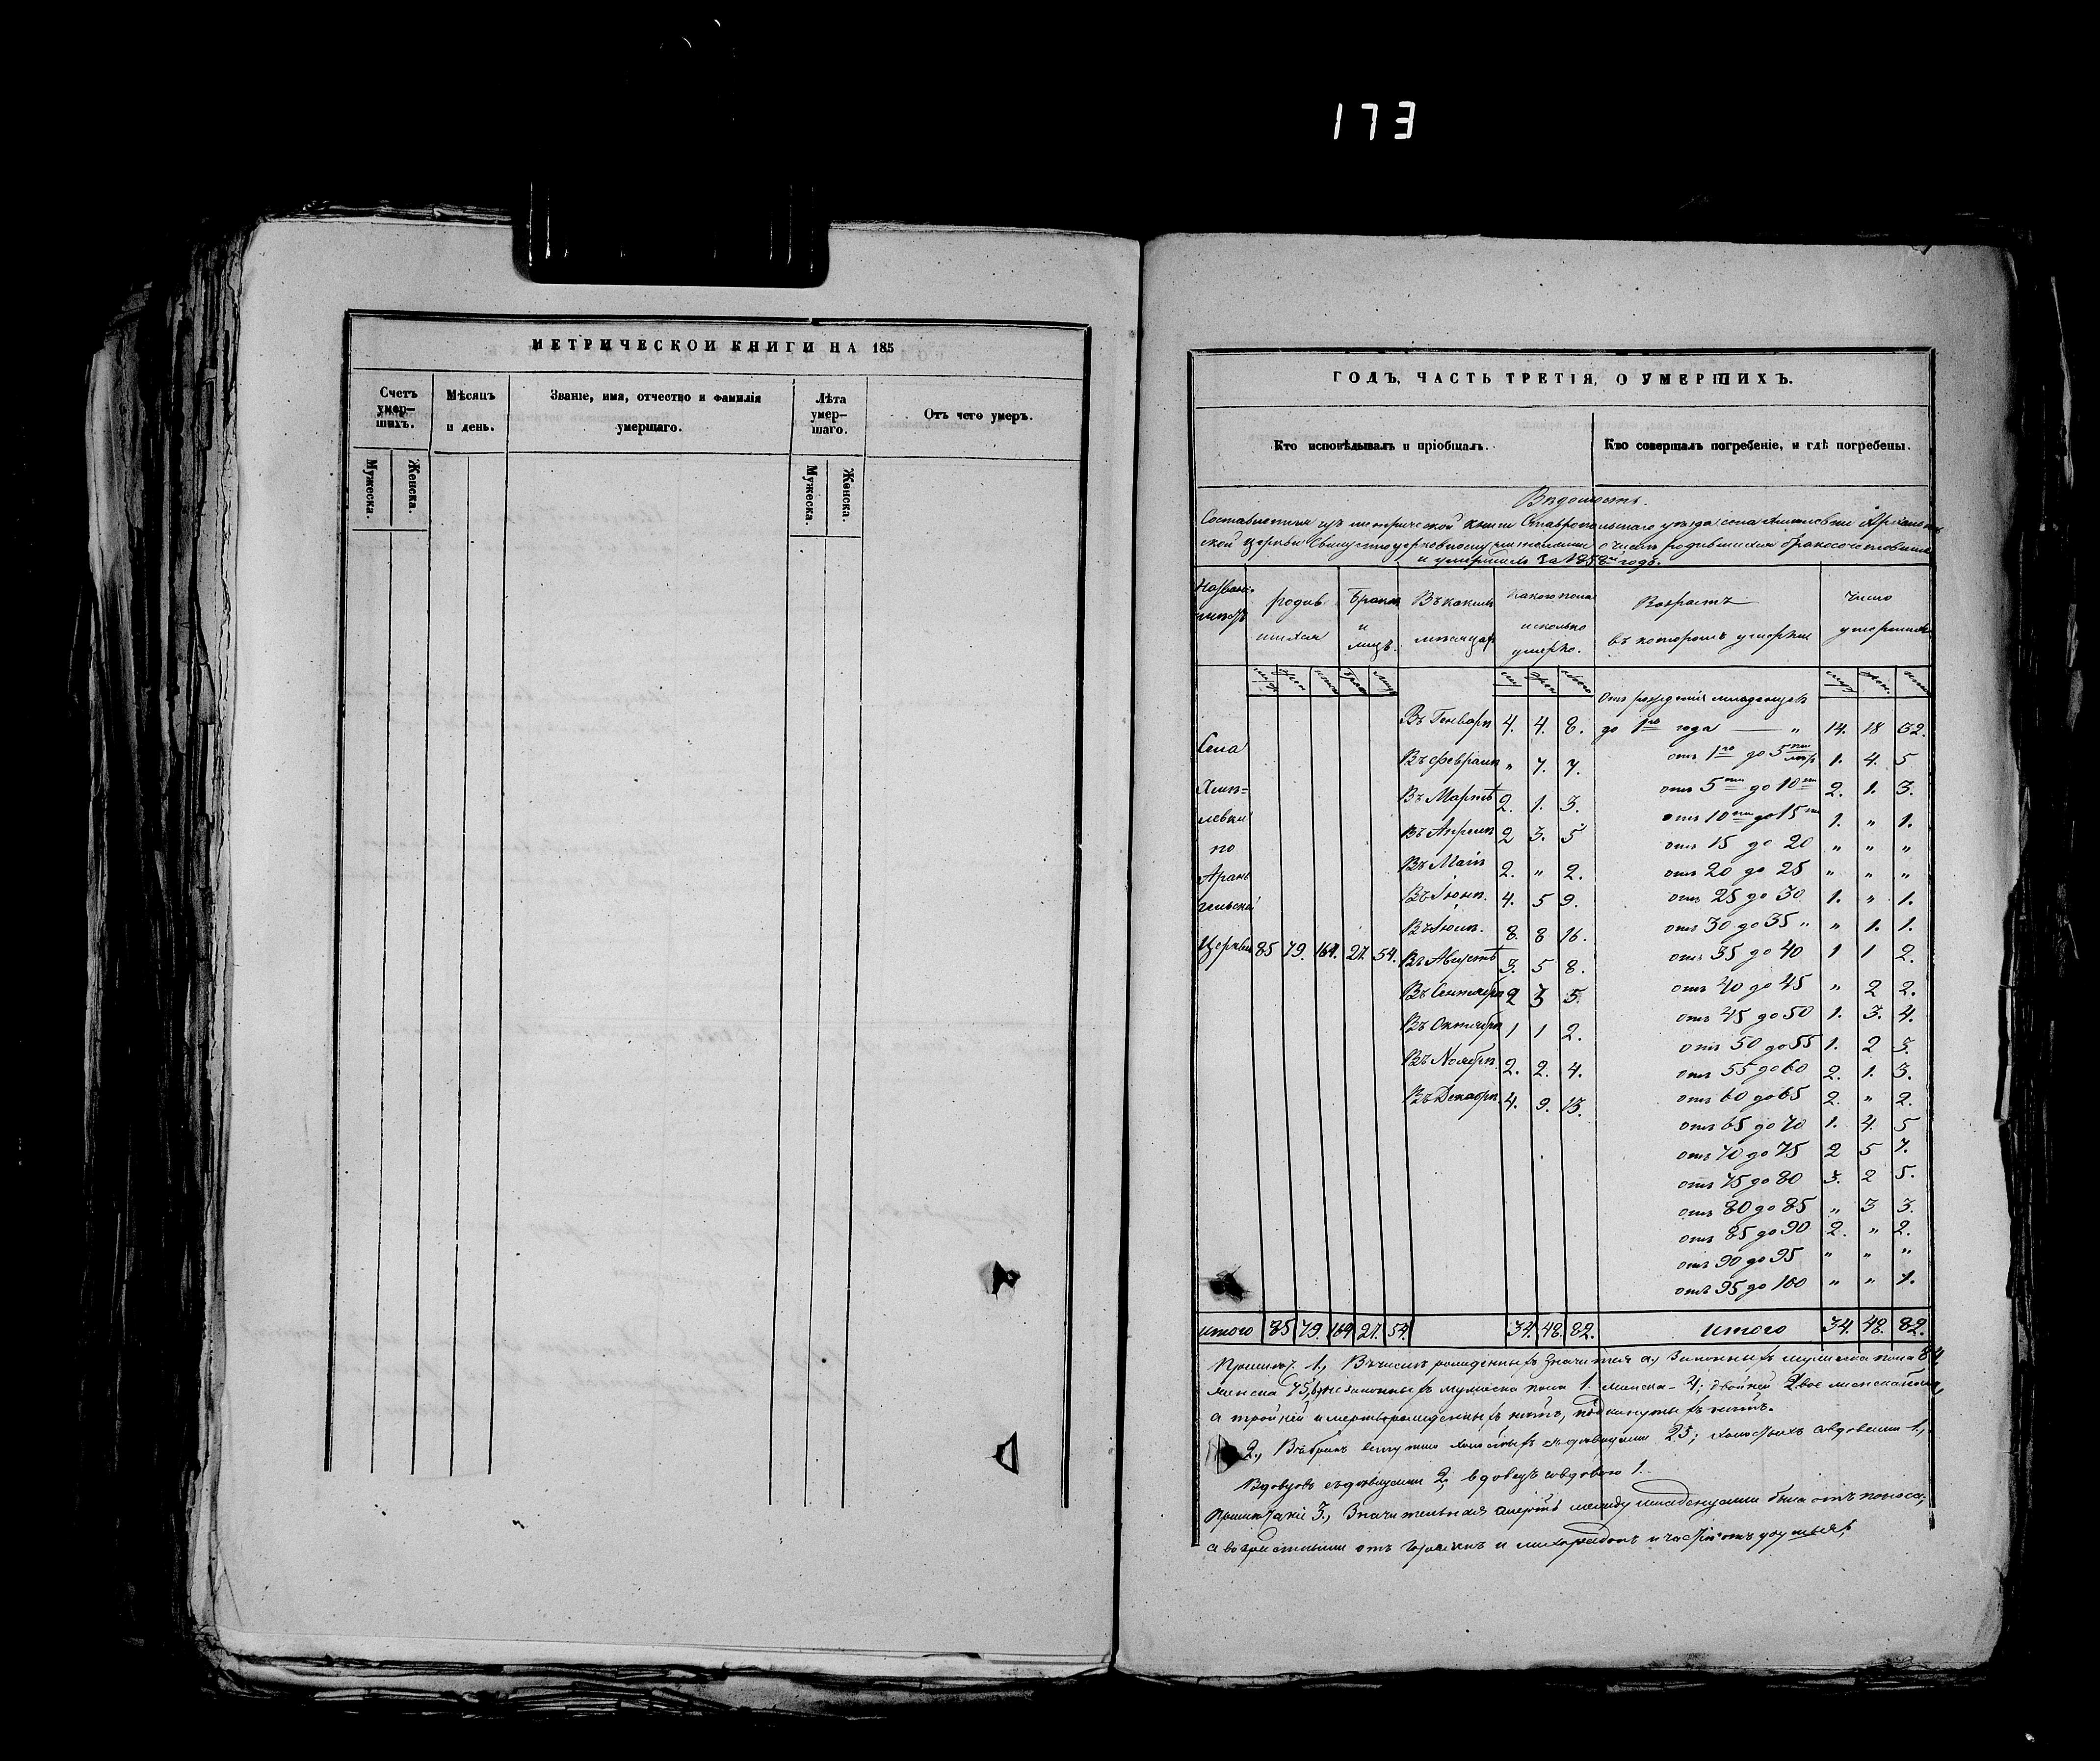 173
МЕТРИЧЕСКОЙ КНИГИ НА 185
Счетъ умер-шихъ.
Мѣсяцъ и день.
Званіе, имя, отчество и фамилія умершаго.
Лѣта умер-шаго.
Отъ чего умеръ.
Мужеска.
Женска.
Мужеска.
Женска.
ГОДЪ, ЧАСТЬ ТРЕТІЯ, О УМЕРШИХЪ.
Кто исповѣдывалъ и пріобщалъ.
Кто совершалъ погребеніе, и гдѣ погребены.
Вѣдомость.
Составленная изъ метрической книги Ставропольскаго уѣзда села
ской церкви о числѣ родившихся бракосочетавшихся
и умершихъ за 1858й годъ.
родив
шихся
Браки
и
лицъ.
Въ какихъ
мѣсяцахъ
какого пола
и сколько
умерло.
Возрастъ
въ которомъ умерли
Число
умершихъ
муж жен итого бра лиц
муж жен обоего
муж жен. итого
Отъ рожденія младенцевъ
Въ Генварѣ 4. 4. 8. до 1го года — " 14. 18 32.
Села
Въ Февралѣ " 7. 7. отъ 1го до 5ти лѣтъ 1. 4. 5
Въ Мартѣ 2. 1. 3. отъ 5ти до 10ти 2. 1. 3.
левки
отъ 10ти до 15ти 1. " 1.
Въ Апрѣлѣ 2 3. 5 отъ 15 до 20 " " "
по
Въ Маіѣ 2. " 2. отъ 20 до 25 " " "
Архан
гельской
Въ Іюнѣ. 4. 5 9. отъ 25 до 30 1. " 1.
Въ Іюлѣ. 8. 8 16. отъ 30 до 35 " " 1. 1.
Церкви 85 79. 164. 27. 54. Въ Августѣ 3. 5 8. отъ 35 до 40 1 1 2.
Въ Сентябрѣ 2 3 5. отъ 40 до 45 " 2 2.
отъ 45 до 50 1. 3. 4.
Въ Октябрѣ 1 1 2. отъ 50 до 55 1. 2 3.
Въ Ноябрѣ. 2. 2. 4. отъ 55 до 60 2. 1. 3.
Въ Декабрѣ. 4. 9. 13. отъ 60 до 65 2. " 2.
отъ 65 до 70 1. 4. 5
отъ 70 до 75 2 5 7.
отъ 75 до 80 3. 2 5.
отъ 80 до 85 " 3 3.
отъ 85 до 90 2. " 2.
отъ 90 до 95 " " "
отъ 95 до 100 " " 1.
Итого 85 79. 164 27. 54. 34. 48. 82. Итого 34. 48. 82.
Примѣч. 1., Въ числѣ рожденныхъ значится а., Законныхъ мужеска пола 84
женска 75, б., незаконныхъ мужеска пола 1. женска - 4; двойней 2вое женска пола,
а тройней и мертворожденныхъ нѣтъ, подкинутыхъ нѣтъ.
2., Въ бракъ вступило холостыхъ съ дѣвицами 25; холостыхъ со вдовами 1.,
Вдовцовъ съ дѣвицами 2; вдовецъ со вдовою 1.
Примѣчаніе 3., Значительная смерть между младенцами была отъ поноса,
а возрастными отъ горячекъ и лихорадокъ и частію отъ